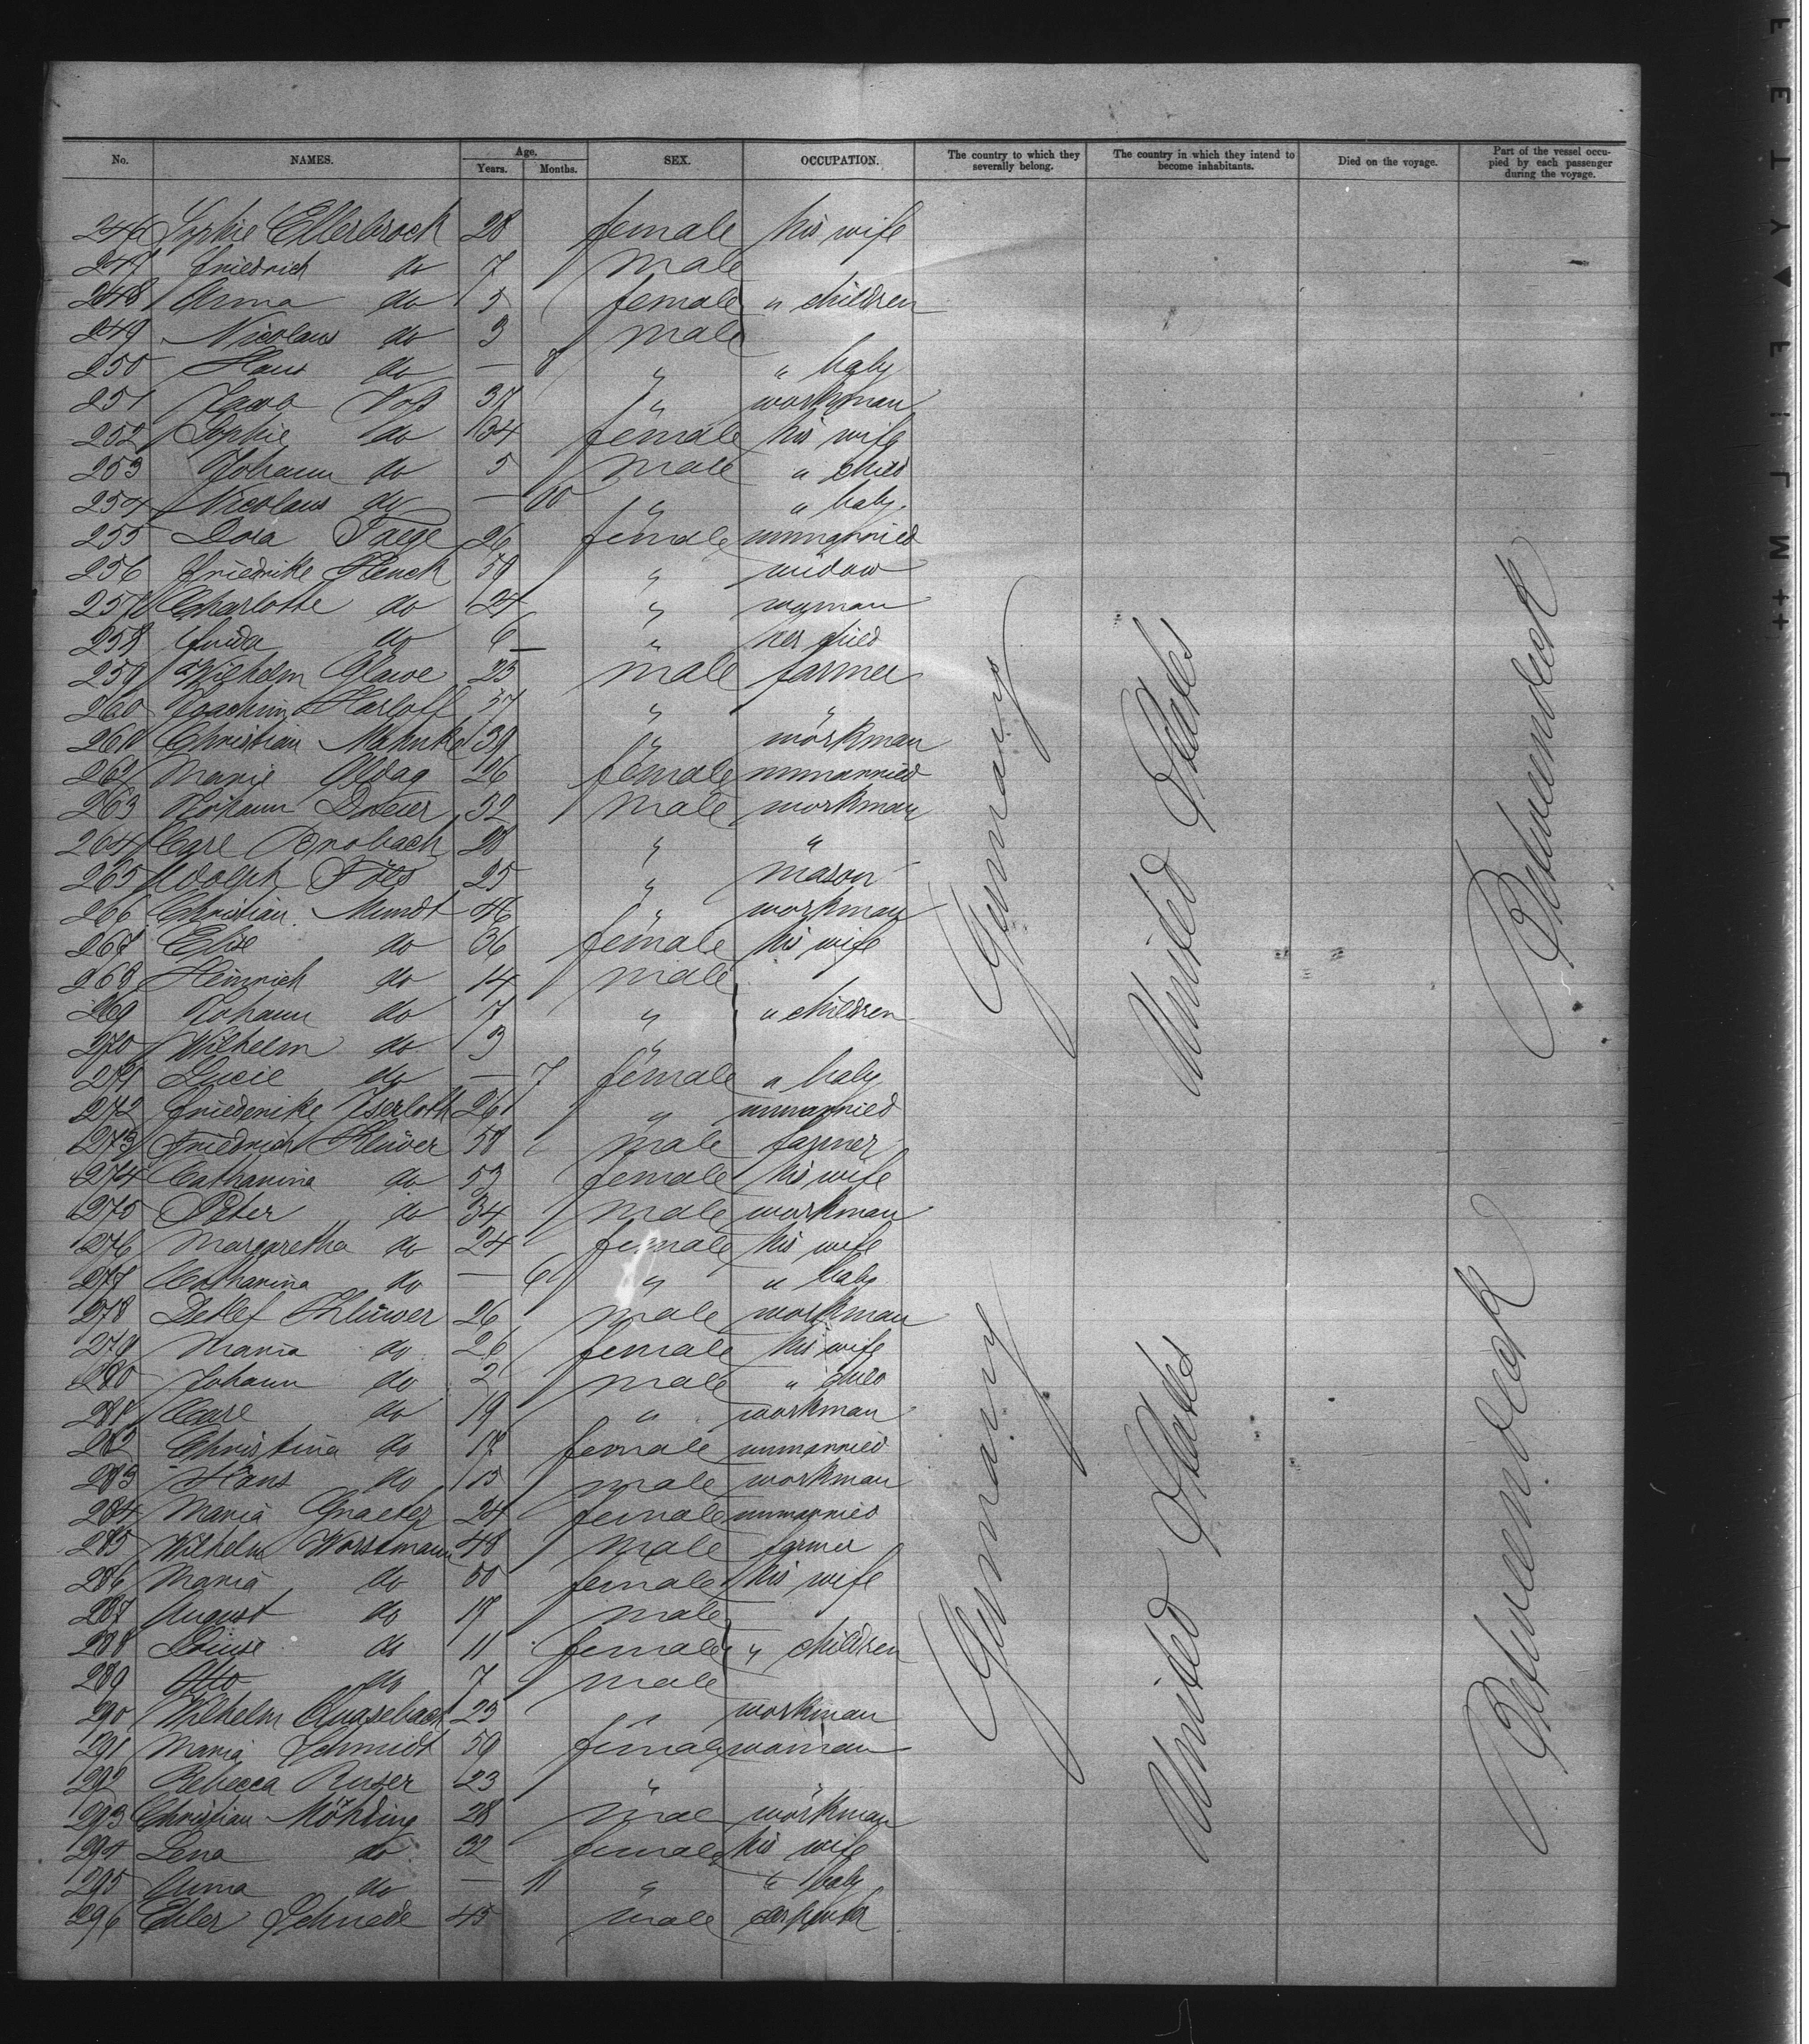 No. NAMES. Age. Years. Months. SEX. OCCUPATION. The country to which they severally belong. The country in which they intend to become inhabitants. Died on the voyage. Part of the vessel occupied by each passenger during the voyage.
246 Sophie Ellerbrock 28 female his wife
247 Friedrich do 7 male
248 Anna do 5 female " children
249 Nicolaus do 3 male
250 Hans do — 8 " " baby
251 Voß 37 " workman
252 Sophie do 34 female his wife
253 Johann do 5 male " child
254 Nicolaus do — 10 " " baby
255 Dora Faege 26 female unmarried
256 Friedrike Henck 59 " widow
257 Charlotte do 24 " woman
258 do 6 " her child
259 Wilhelm Glawe 25 male farmer
260 Joachim Harloff 37 " "
261 Christian Mahnke 39 " workman
262 Marie Aldag 26 female unmarried
263 Johann 32 male workman
264 Carl Brobach 28 " "
265 Adolph 25 " mason
266 Christian Mundt 46 " workman
267 Elise do 36 female his wife
268 Heinrich do 14 male
269 Johann do 7 " " children
270 Wilhelm do 3 "
271 Lucie do — 7 female " baby
272 Friederike Iserloth 26 " unmarried
273 Friedrich Klüver 58 male farmer
274 Catharina do 53 female his wife
275 Peter do 34 male workman
276 Margaretha do 24 female his wife
277 Catharina do — 6 " " baby
278 Detlef Klüwer 26 male workman
279 Maria do 26 female his wife
280 Johann do 2 male " child
281 Carl do 19 " workman
282 Christina do 17 female unmarried
283 Hans do 15 male workman
284 Maria Graefer 24 female unmarried
285 Wilhelm Worstmann 48 male farmer
286 Maria do 50 female his wife
287 August do 17 male
288 Louise do 11 female " children
289 Otto do 7 male
290 Wilhelm Quasebach 23 " workman
291 Maria Schmidt 59 female woman
292 Rebecca Ruser 23 " "
293 Christian Möhding 28 male workman
294 Lena do 32 female his wife
295 Anna do — 11 " " baby
296 Ehler Schnede 45 male carpenter
Germany United States Betweendeck
Germany United States Betweendeck